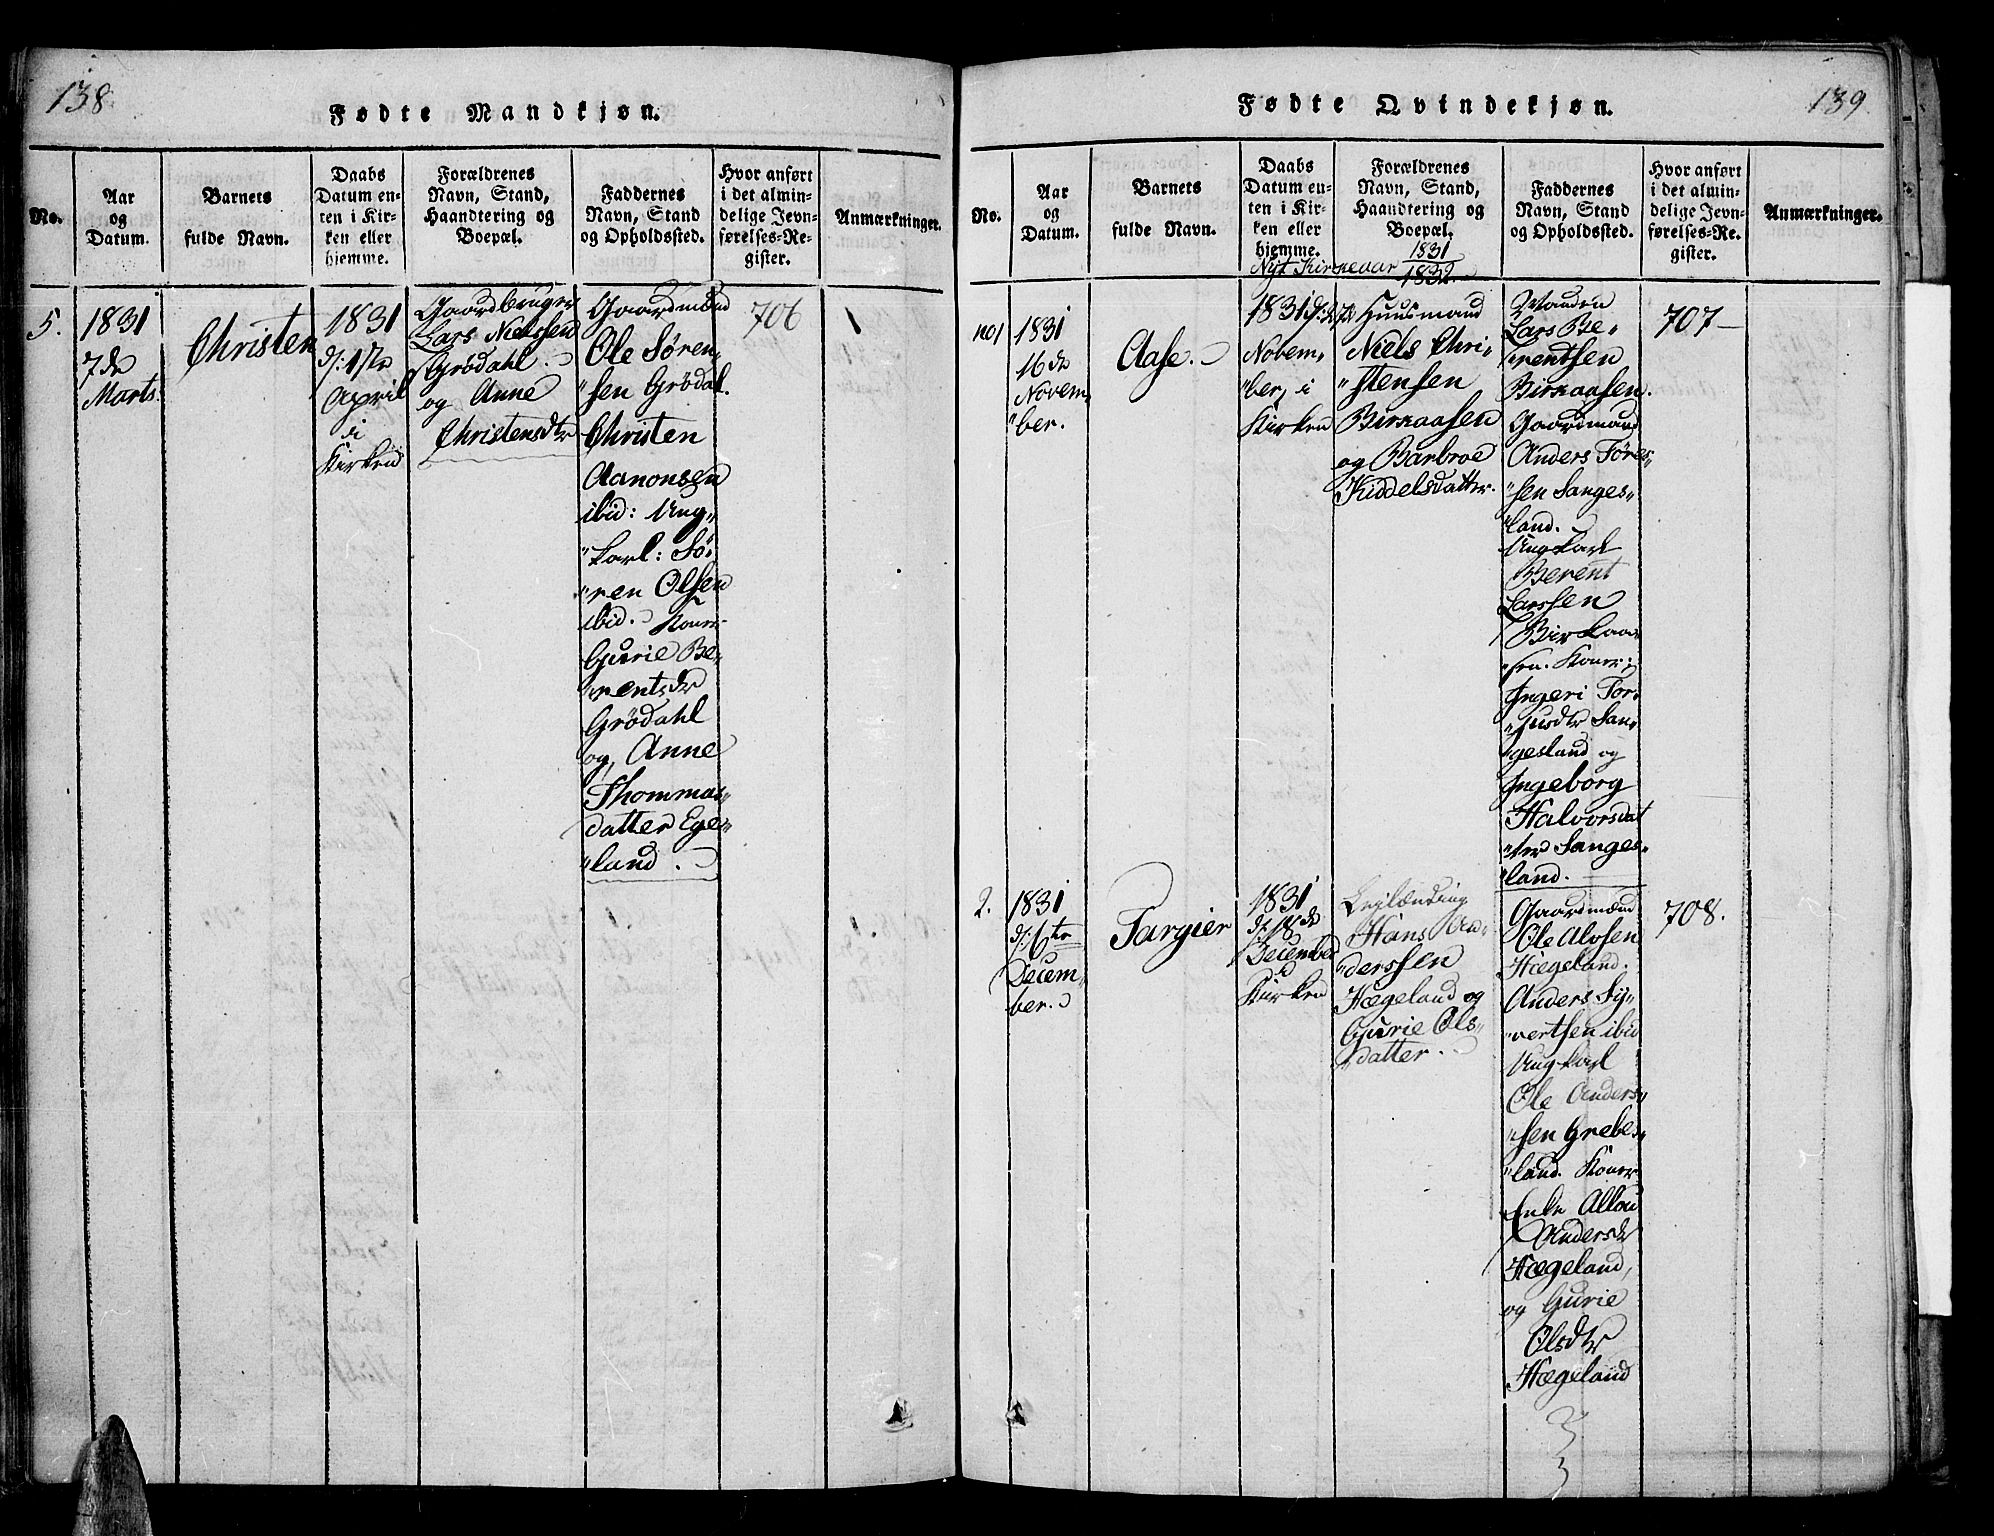 138
Fødte Mandkjøn.
No.
Aar
og
Datum.
Barnets
fulde Navn.
Daabs
Datum en-
ten i Kir-
ken eller
hjemme.
Forældrenes
Navn, Stand,
Haandtering og
Boepæl.
Faddernes
Navn, Stand
og Opholdssted.
Hvor anført
i det almin-
delige Jevn-
førelses-Re-
gister.
Anmærkninger.
5.
1831
7de
Marts.
Christen
1831
d: 1ste
April
i
Kirken
Gaardbruger
Lars Nielssen
Grödahl
og Anne
Christensdtr
Gaardmænd
Ole Sören-
"sen Grödal.
Christen
Aanonsen
ibid: Ung-
"karl: Sö-
"ren Olsen
ibid. Koner
Gurie Be-
"rentsdr
Grödahl
og, Anne
Thommas-
datter Ege-
"land.
706
139
Fødte Qvindekjøn.
No.
Aar
og
Datum.
Barnets
fulde Navn.
Daabs
Datum en-
ten i Kir-
ken eller
hjemme.
Forældrenes
Navn, Stand,
Haandtering og
Boepæl.
Faddernes
Navn, Stand
og Opholdssted.
Hvor anført
i det almin-
delige Jevn-
førelses-Re-
gister.
Anmærkninger.
Nyt Kirkeaar 1831
1832
no1
1831
16de
Novem,
"ber.
Aase.
1831
Novem,
"ber, i
Kirken
Huusmand
Niels Chri-
"stensen
Birkaasen
og Barbroe
Kiddelsdatter.
Manden
Lars Be-
"rentsen
Birkaasen.
Gaardmand
Anders Töres-
"sen Sanges-
"land.
Ungkarl
Berent
Larssen
Birkaa-
"sen. Koner:
Ingeri Tor-
"jusdtr San-
"gesland og
Ingeborg
Halvorsdat
"ter Sanges-
"land.
707
2.
1831
d: 6te
Decem-
ber.
Targier
1831
d: 18de
December
i
Kirken
Leilænding
Hans An-
"derssen
Hægeland og
Gurie Ols-
"datter.
Gaardmænd
Ole Alvsen
Hægeland.
Anders Sy-
"vertsen ibid
Ungkarl
Ole Anders-
"sen Grebes-
"land. Koner
Enke
Andersdr
Hægeland,
og Gurie
Olsdtr
Hægeland
708.